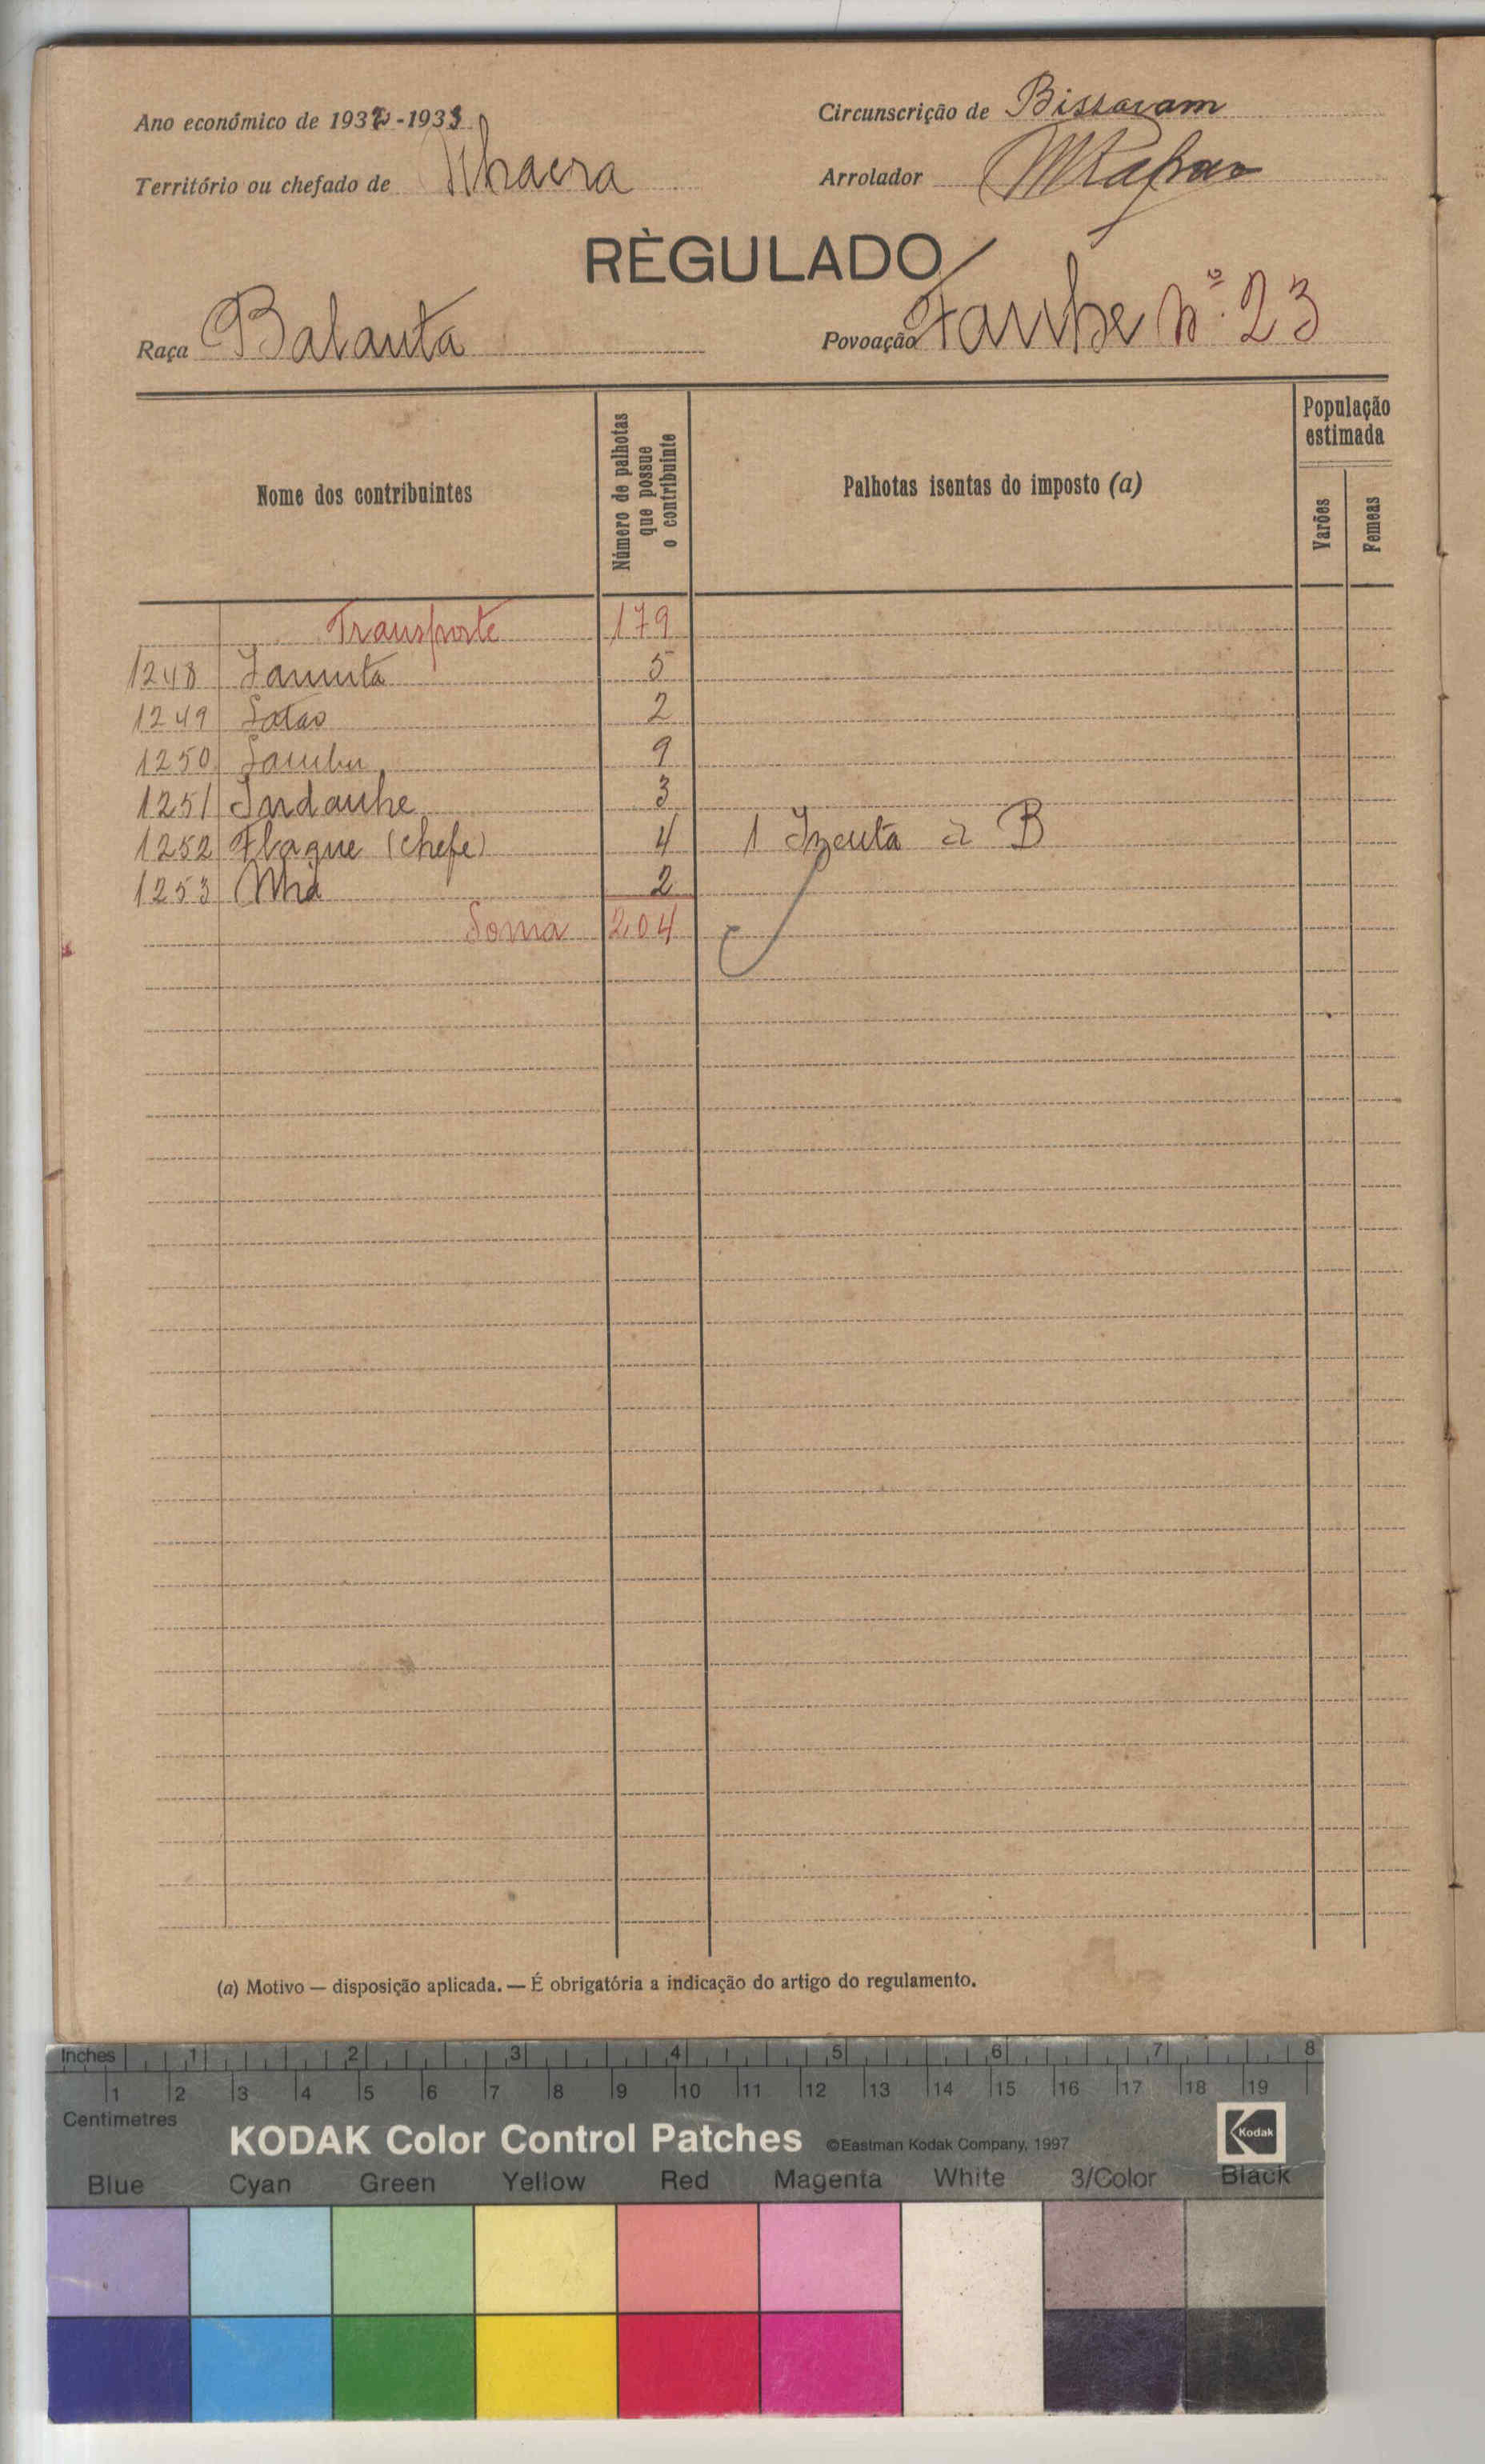 Ano económico de 1932-1933
Circunscrição de Bissoram
Território ou chefado de
Arrolador
RÈGULADO
Raça Balanta
Povoação Fanhe Nº 23
Nome dos contribuintes
Número de palhotas que possue o contribuinte
Palhotas isentas do imposto (a)
População estimada
Varões
Femeas
Transporte 179
1248 5
1249 2
1250 9
1251 Indanhe 3
1252 Flaque (chefe) 4 1 Izenta a B
1253 Nhá 2
Soma 204
(a) Motivo — disposição aplicada. — É obrigatória a indicação do artigo do regulamento.
Inches 1 2 3 4 5 6 7 8
1 2 3 4 5 6 7 8 9 10 11 12 13 14 15 16 17 18 19
Centimetres
KODAK Color Control Patches ©Eastman Kodak Company, 1997 Kodak
Blue Cyan Green Yellow Red Magenta White 3/Color Black